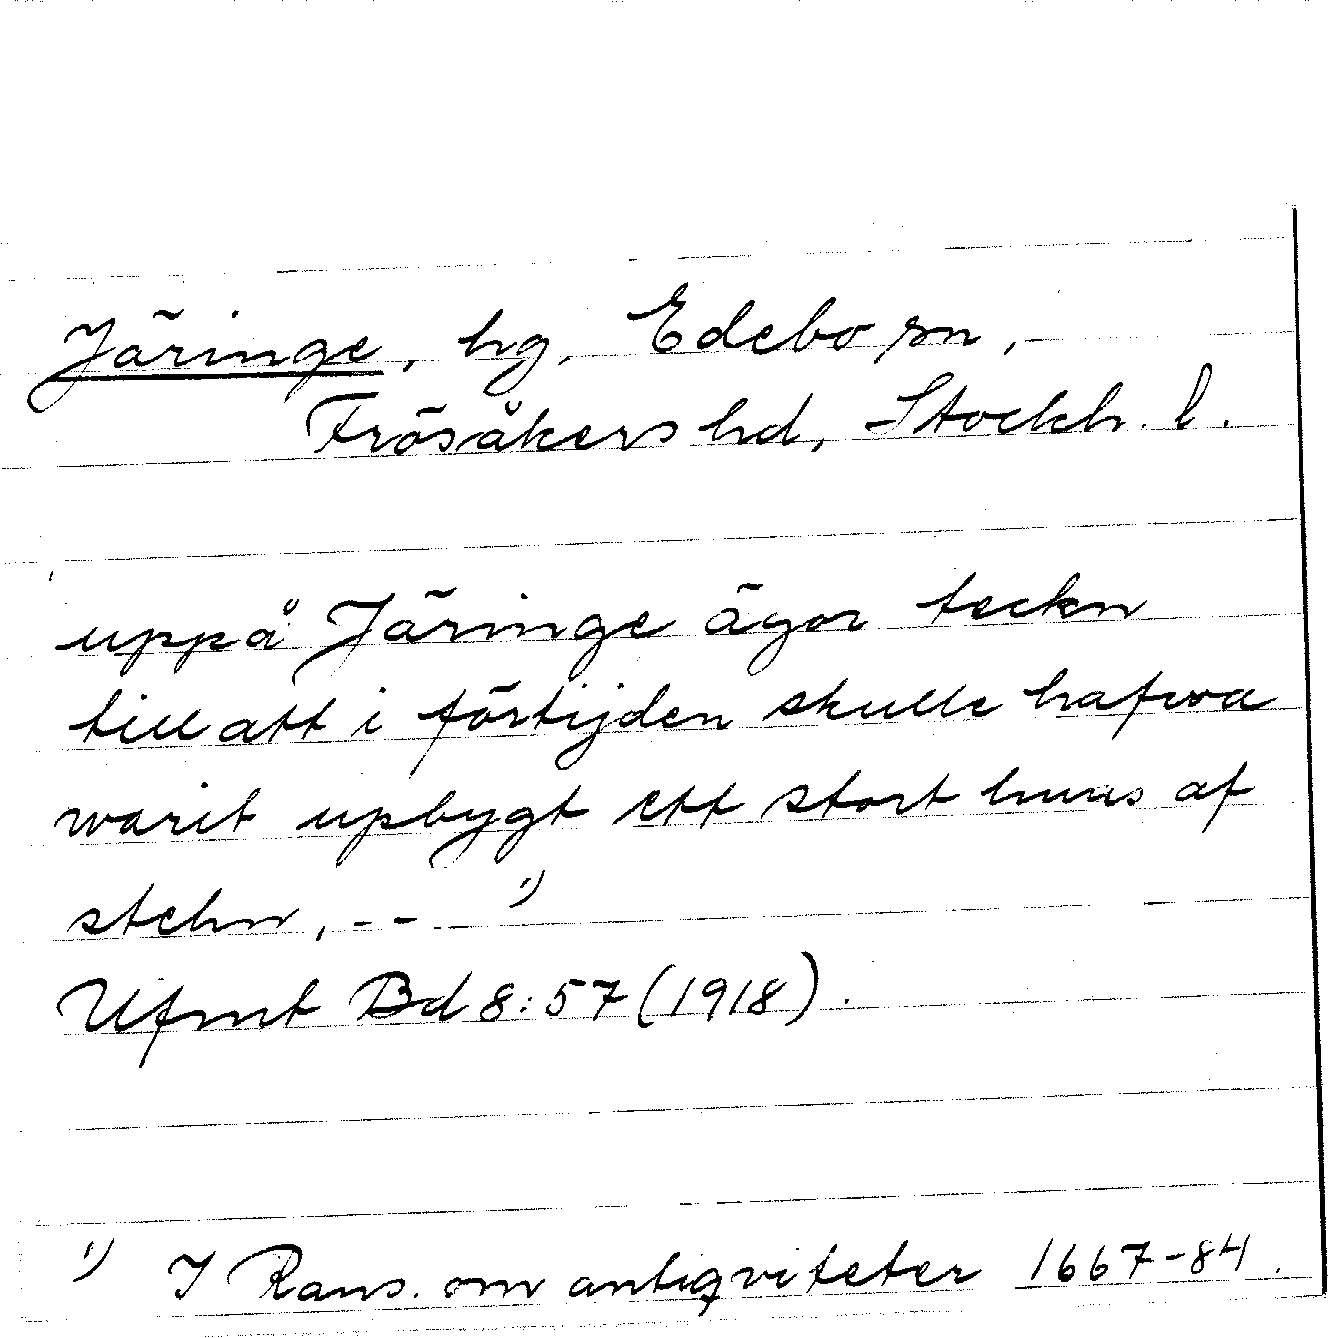 Järinge, hg, Edebo sn,
Frösåkers hd, Stockh. l.
uppå Järinge ägor teckn
till att i förtijden skulle hafwa
warit upbygt ett stort huus af
stehn, -- 1)
Ufmt Bd 8:57 (1918).
1) I Rans. om antiqviteter 1667-84.